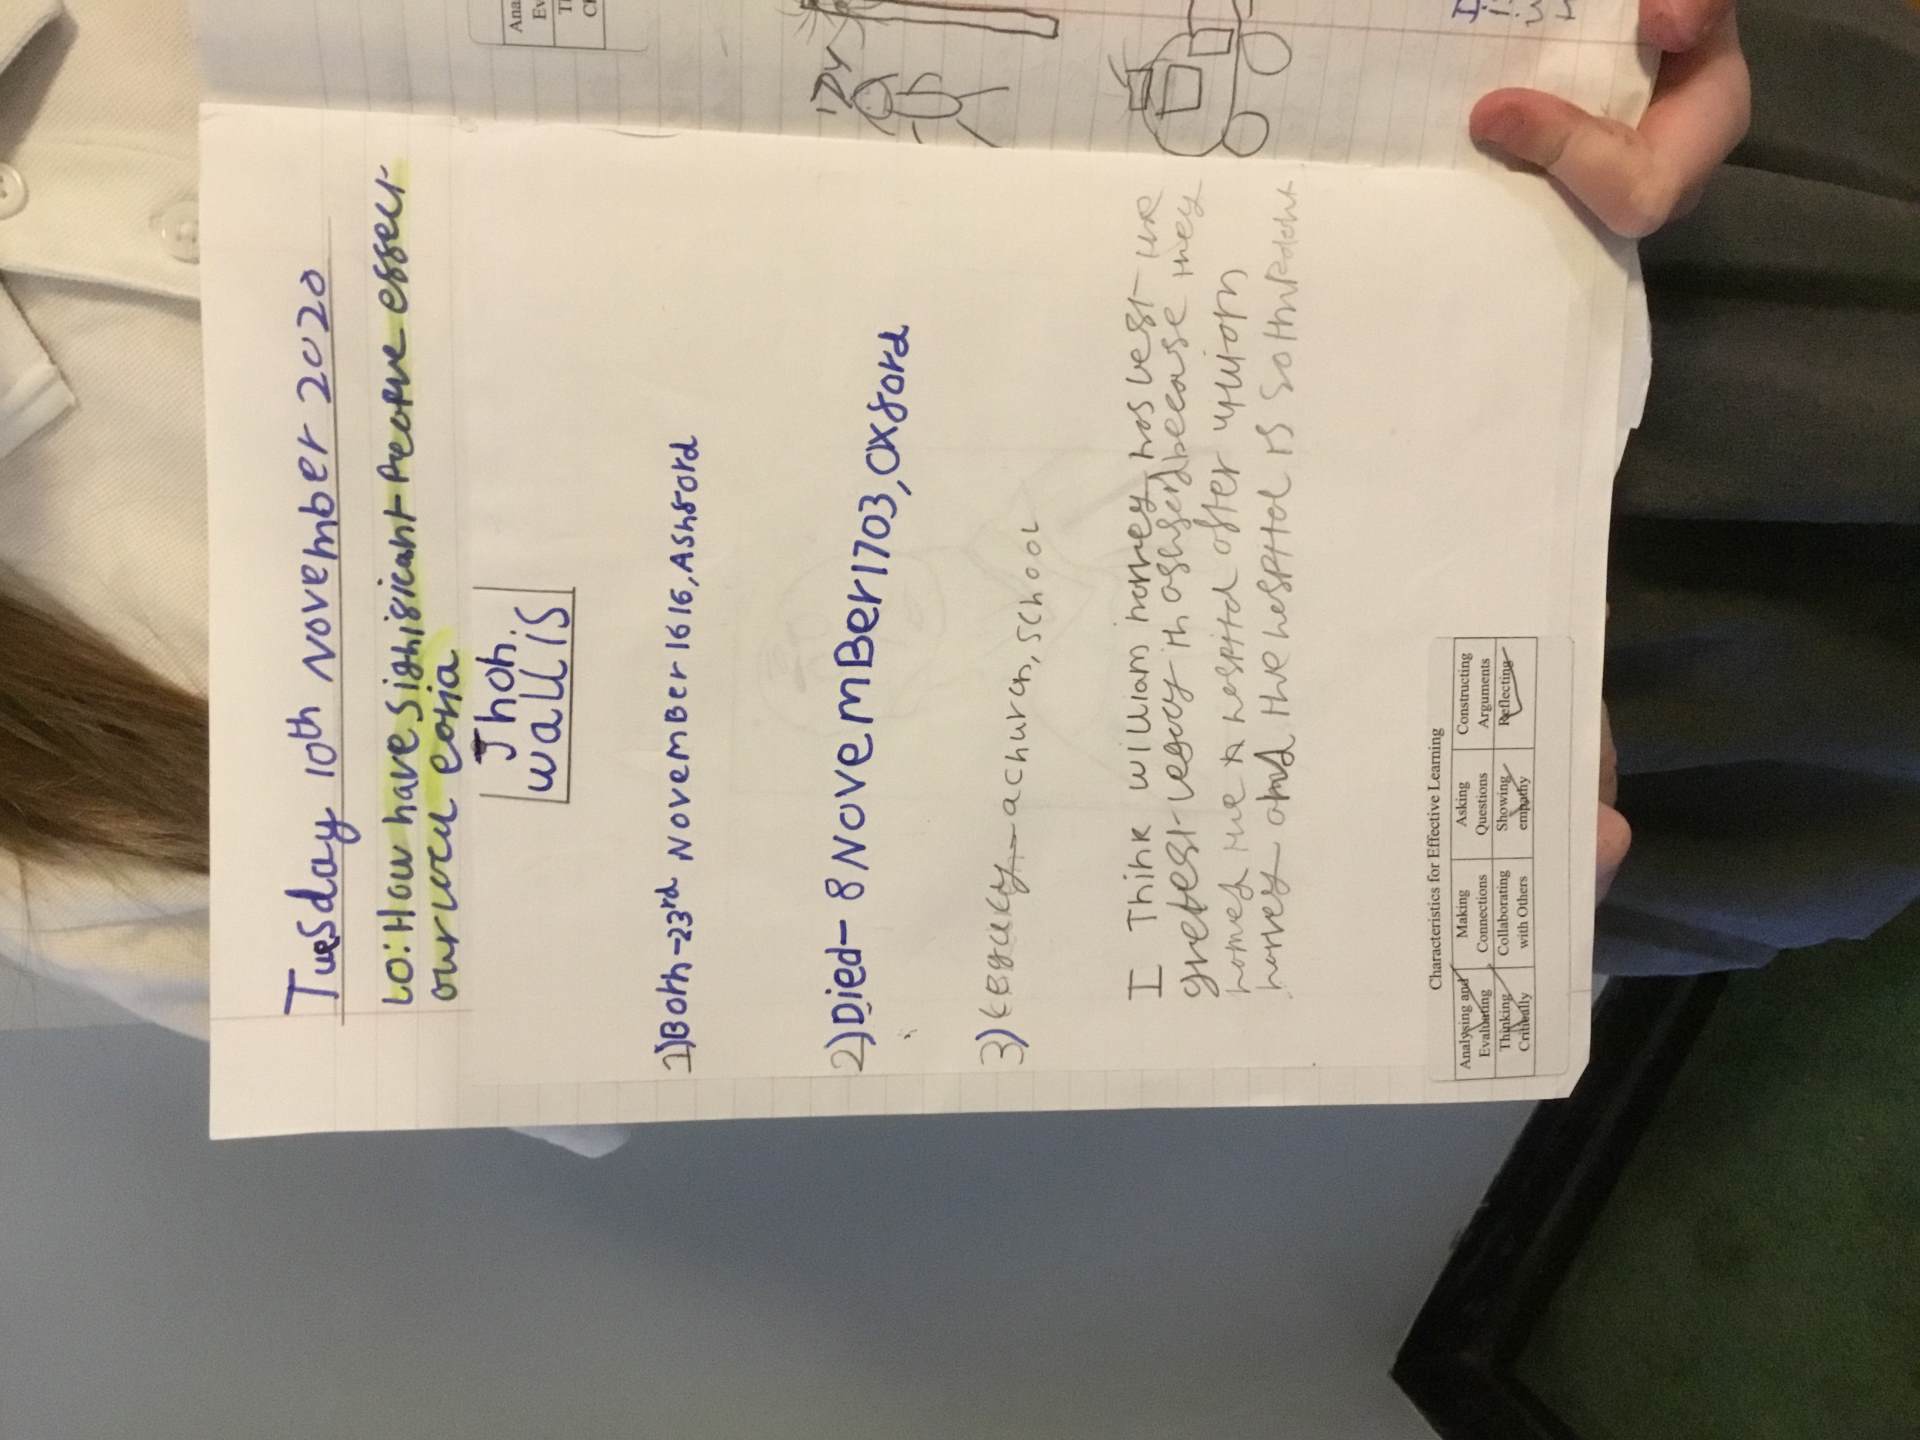 Tuesday 10th November 2020
LO: How have significant People effect
our local eoria
Jhoh
wallis
1) Bohn-23rd November 1616, Ashford
2) Died- 8 NovemBer 1703, Oxford
3) - a church, school
I Think william harvey has left the
gretest legacy in ashford because they
named the hospital after william
harvey and the hospital is
Characteristics for Effective Learning
Analysing and Evaluating Making Connections Asking Questions Constructing Arguments
Thinking Critically Collaborating with Others Showing empathy Reflecting
Ana
Ev